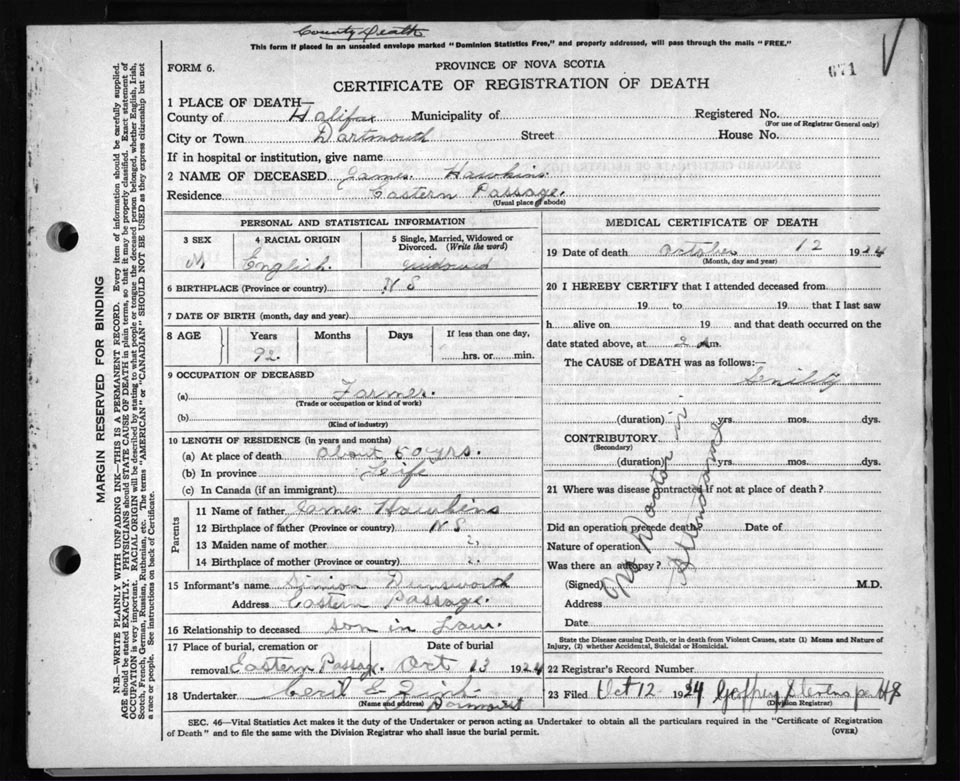 County Death
This form if placed in an unsealed envelope marked "Dominion Statistics Free," and properly addressed, will pass through the mails "FREE."
FORM 6.
PROVINCE OF NOVA SCOTIA
671
CERTIFICATE OF REGISTRATION OF DEATH
1 PLACE OF DEATH—
County of Halifax Municipality of Registered No.
(For use of Registrar General only)
City or Town Dartmouth Street House No.
If in hospital or institution, give name
2 NAME OF DECEASED James Hawkins
Residence Eastern Passage.
(Usual place of abode)
PERSONAL AND STATISTICAL INFORMATION
3 SEX 4 RACIAL ORIGIN 5 Single, Married, Widowed or Divorced. (Write the word)
M English. widowed
6 BIRTHPLACE (Province or country) N S
7 DATE OF BIRTH (month, day and year)
8 AGE Years Months Days If less than one day,
92. hrs. or min.
9 OCCUPATION OF DECEASED
(a) Farmer.
(Trade or occupation or kind of work)
(b)
(Kind of industry)
10 LENGTH OF RESIDENCE (in years and months)
(a) At place of death about 60 yrs.
(b) In province Life
(c) In Canada (if an immigrant)
Parents
11 Name of father James Hawkins
12 Birthplace of father (Province or country) N S
13 Maiden name of mother ?
14 Birthplace of mother (Province or country) ?
15 Informant's name Simion Dunsworth
Address Eastern Passage.
16 Relationship to deceased son in Law.
17 Place of burial, cremation or removal Eastern Passage. Date of burial Oct 13 1924
18 Undertaker Cecil E Zink
(Name and address) Dartmouth
MEDICAL CERTIFICATE OF DEATH
19 Date of death October 12 1924
(Month, day and year)
20 I HEREBY CERTIFY that I attended deceased from
19 to 19 that I last saw
h alive on 19 and that death occurred on the
date stated above, at 2 a.m.
The CAUSE of DEATH was as follows:—
Senility
(duration) yrs. mos. dys.
CONTRIBUTORY
(Secondary)
(duration) yrs. mos. dys.
21 Where was disease contracted if not at place of death?
Did an operation precede death Date of
Nature of operation
Was there an autopsy?
(Signed) M.D.
Address
Date
No Doctor in Attendance
State the Disease causing Death, or in death from Violent Causes, state (1) Means and Nature of
Injury, (2) whether Accidental, Suicidal or Homicidal.
22 Registrar's Record Number
23 Filed Oct 12 1924 Goffrey Stevens per HS
(Division Registrar)
SEC. 46—Vital Statistics Act makes it the duty of the Undertaker or person acting as Undertaker to obtain all the particulars required in the "Certificate of Registration
of Death" and to file the same with the Division Registrar who shall issue the burial permit.
(OVER)
MARGIN RESERVED FOR BINDING
N.B.—WRITE PLAINLY WITH UNFADING INK—THIS IS A PERMANENT RECORD. Every item of information should be carefully supplied.
AGE should be stated EXACTLY. PHYSICIANS should STATE CAUSE OF DEATH in plain terms, so that it may be properly classified. Exact statement of
OCCUPATION is very important. RACIAL ORIGIN will be described by stating to what people or tongue the deceased person belonged, whether English, Irish,
Scotch, French, German, Russian, Ruthenian, etc. The terms "AMERICAN" or "CANADIAN" SHOULD NOT BE USED as they express citizenship but not
a race or people. See instructions on back of Certificate.